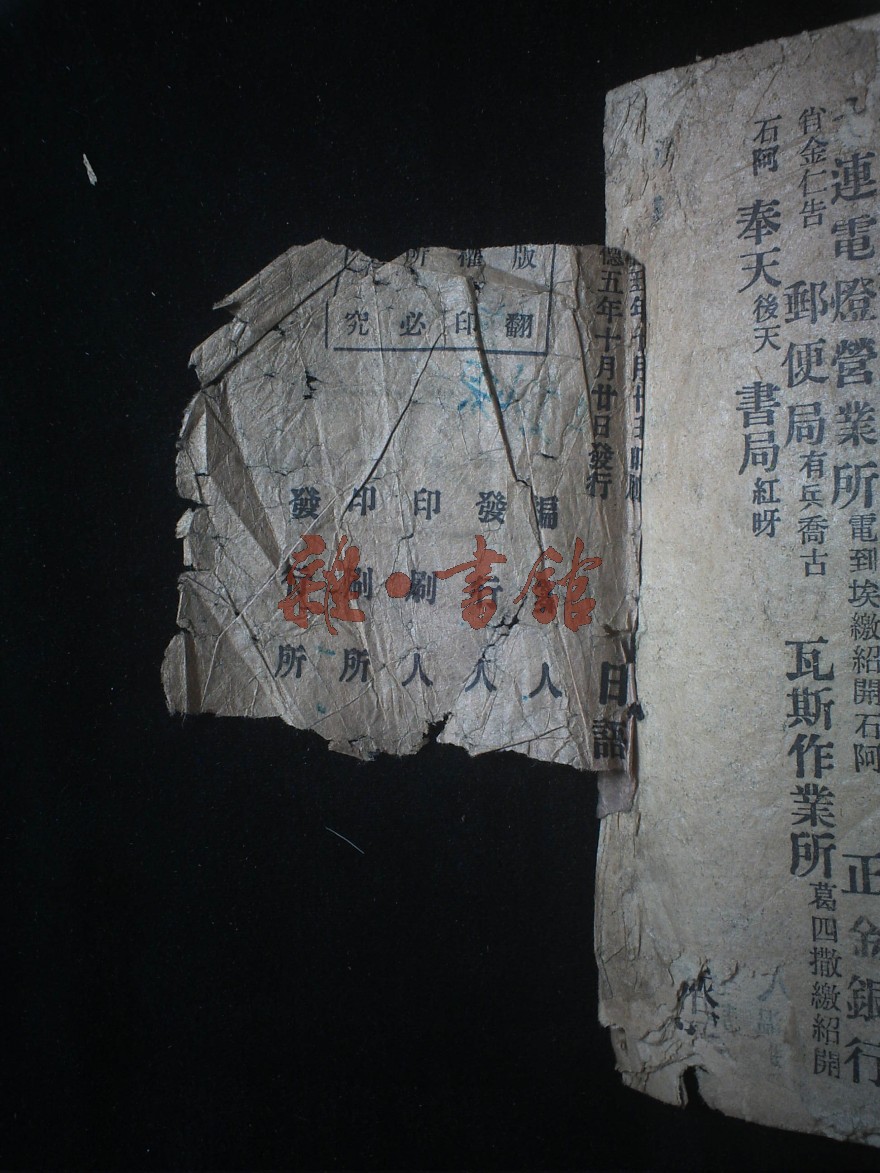 連電燈營業所 電到埃繳紹開石阿 正金銀行
省金仁告 郵便局 有兵喬古 瓦斯作業所 葛四撒繳紹開
石阿 奉天 後天 書局 紅呀
德五年十月廿日發行
日語
版權所
翻印必究
編人
發行人
印刷人
印刷所
發行所
雜·書館